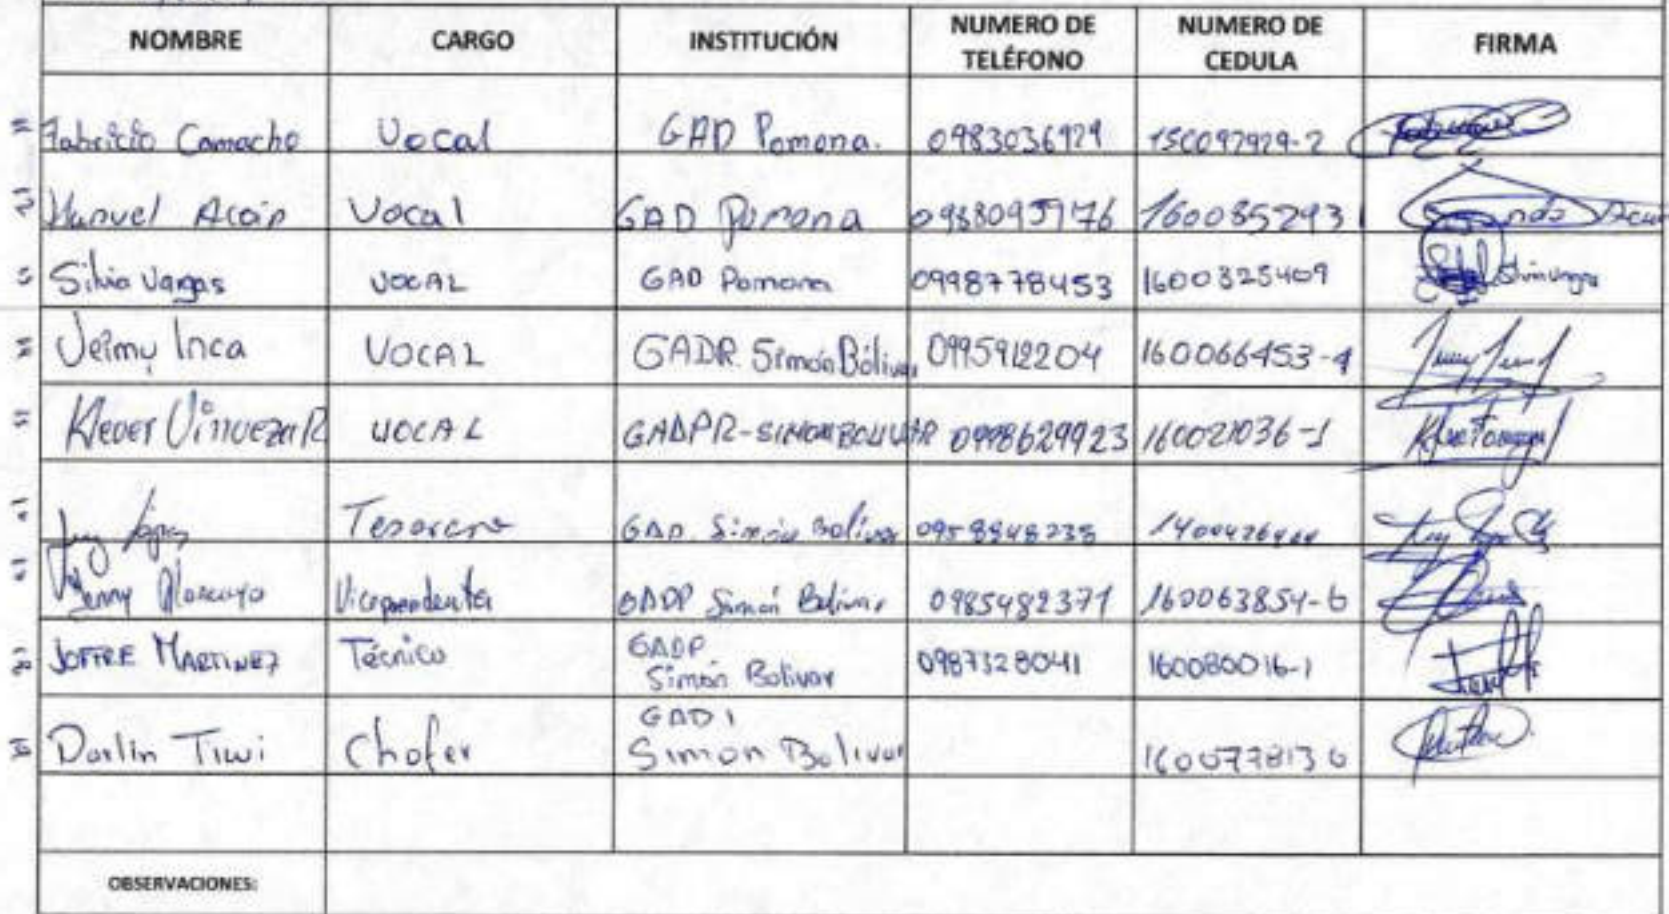 NOMBRE CARGO INSTITUCIÓN NUMERO DE TELÉFONO NUMERO DE CEDULA FIRMA
Fabricio Camacho Vocal GAD Pomona. 0983036929
Manuel Vocal GAD Pomona 1600852931
Silvia Vargas VOCAL GAD Pomona 0998778453 1600325409
Jeimy Inca VOCAL GADR. Simón Bólivar 0995912204 160066453-4
Klever Vinueza R VOCAL GADPR-SIMON BOLIVAR 0998629923 160021036-1
López Tesorero GAD. Simón Bolívar 0958848238
Jenny Vicepresidenta GADP Simón Bolívar 0985482371 160063854-6
JOFFRE MARTINEZ Técnico GADP Simón Bolivar 0987328041 160080016-1
Darlin Tiwi Chofer GAD Simon Bolivar 1600778136
OBSERVACIONES: